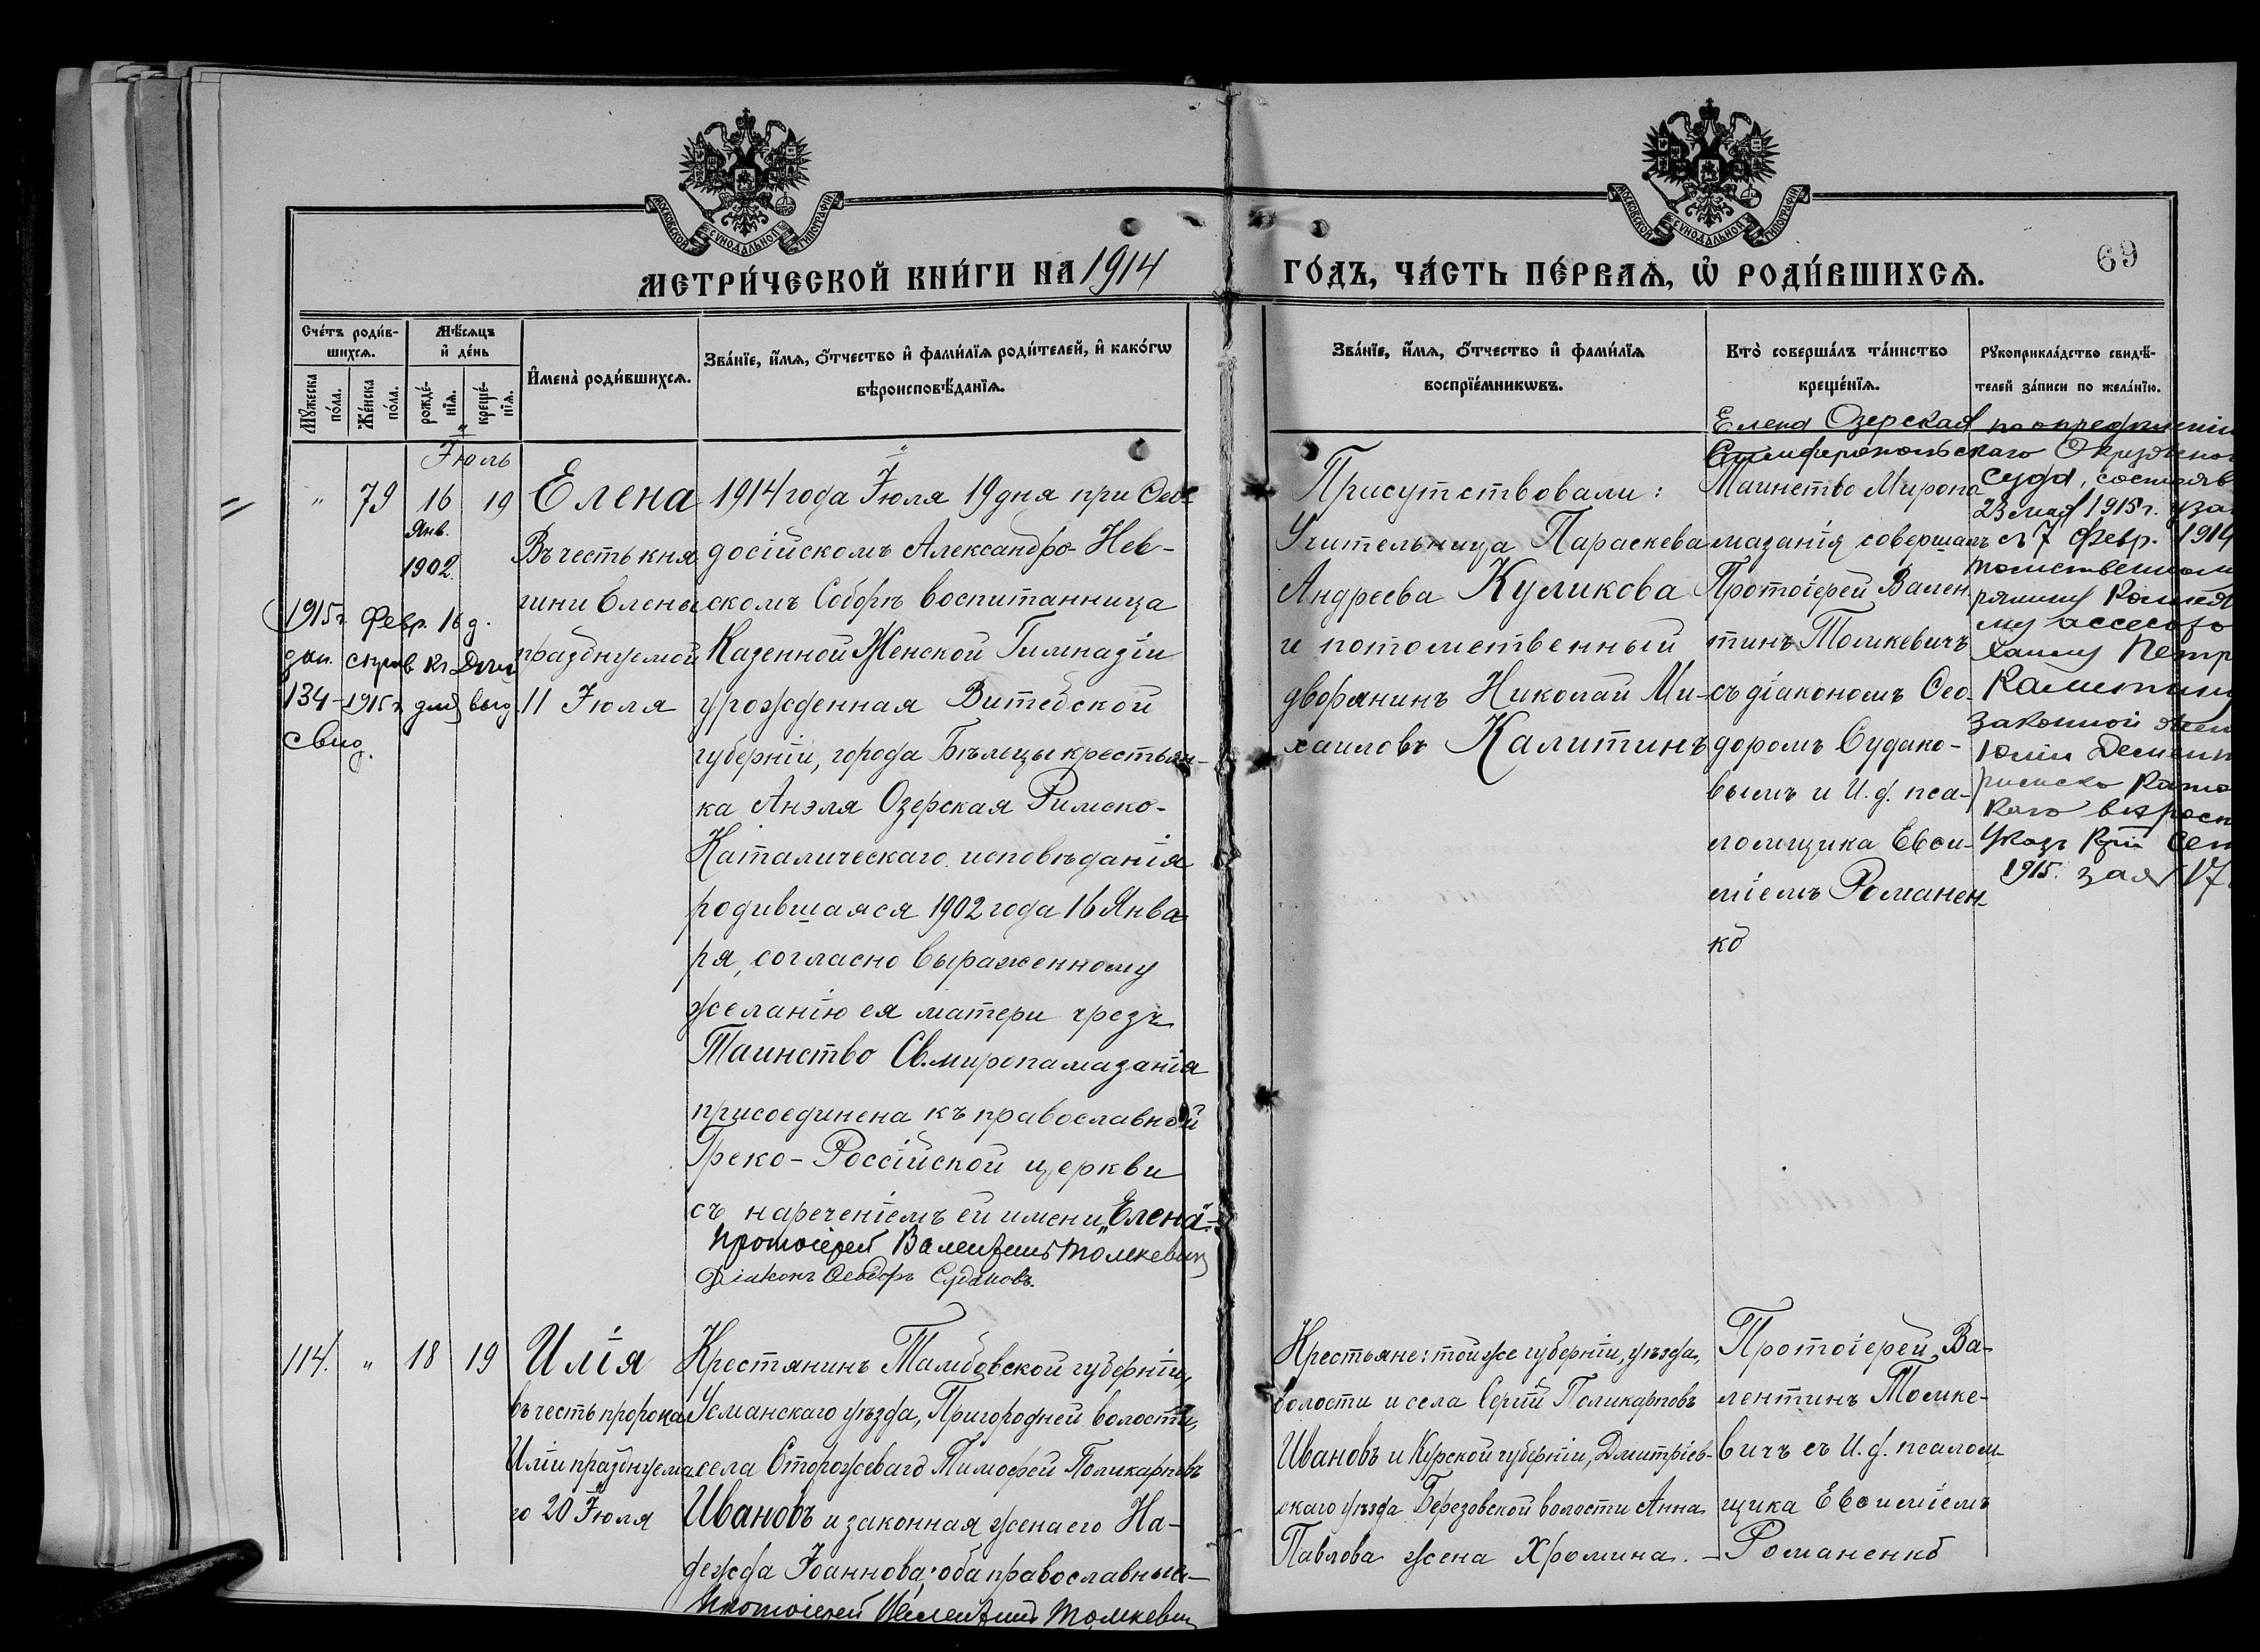 МОСКОВСКОЙ СѴНОДАЛЬНОЙ ТИПОГРАФІИ
МОСКОВСКОЙ СѴНОДАЛЬНОЙ ТИПОГРАФІИ
69
МЕТРИ́ЧЕСКОЙ КНИ́ГИ НА 1914 ГО́ДЪ, ЧА́СТЬ ПЕ́РВАѦ, Ѡ҆ РОДИ́ВШИХСѦ.
Сче́тъ роди́в-
шихсѧ.
Мѣ́сѧцъ
и҆ де́нь
Мꙋ́жеска
по́ла.
Же́нска
по́ла.
рожде́-
нїѧ.
креще́-
нїѧ.
И҆мена̀ роди́вшихсѧ.
Зва́нїе, и҆́мѧ, ѻ҆́тчество и҆ фами́лїѧ роди́телей, и҆ како́гѡ
вѣроисповѣ́данїѧ.
Зва́нїе, и҆́мѧ, ѻ҆́тчество и҆ фами́лїѧ
воспрїе́мникѡвъ.
Кто̀ соверша́лъ та́инство
креще́нїѧ.
Рꙋкоприкла́дство свидѣ́-
телей за́писи по жела́нїю.
Іюль
" 79 16 19
Янв.
1902.
1915 г. Февр. 16 д.
134 - 1915 г. для выд.
Свид.
Елена
Въ честь кня
гини Елены
празднуемой
11 Іюля
1914 года Іюля 19 дня при Ѳео
досійскомъ Александро-Нев-
скомъ Соборѣ воспитанница
Казенной Женской Гимназіи
урожденная Витебской
губерніи, города Бѣльцы крестьян-
ка Анэля Озерская Римско-
Каталическаго исповѣданія
родившаяся 1902 года 16 Янва
ря, согласно выраженному
желанію ея матери чрезъ
Таинство Св. миропамазанія
присоединена къ православной
Греко-Россійской церкви
съ нареченіемъ ей имени „Елена"-
Протоіерей Валентинъ Томкевич
Діаконъ Ѳеодоръ Судаковъ.
Присутствовали:
Учительница Параскева
Андреева Куликова
и потомственный
дворянинъ Николай Ми-
хаиловъ Калитинъ
Таинство Миропо
мазанія совершалъ
Протоіерей Вален
тинъ Томкевичъ
съ діакономъ Ѳео
доромъ Судако-
вымъ и И. д. пса-
ломщика Евѳи-
міемъ Романен-
ко
Елена Озерская по опредѣленію
Симферопольскаго Окружно
Суда, состояв
23 мая 1915 г. уза
съ 7 Февр. 1914
томственном
му ассесо
хаилу Петр
Калитин
законной жен
Юліи
римско като
каго вѣроисп
1915. за № 17
114. " 18 19
Илія
въ честь пророка
Иліи празднуема
го 20 Іюля
Крестянинъ Тамбовской губерніи,
Усманскаго уѣзда, Пригородней волости,
села Сторожеваго Тимоѳей Поликарповъ
Ивановъ и законная жена его На-
дежда Іоаннова; оба православные-
Протоіерей Валентинъ Томкевич
Крестьяне: той же губерніи, уѣзда,
волости и села Сергій Поликарповъ
Ивановъ и Курской губерніи, Дмитріев-
скаго уѣзда Березовской волости Анна
Павлова жена Хромина. -
Протоіерей Ва-
лентинъ Томке-
вичъ съ И. д. псалом
щика Евѳиміемъ
Романенко